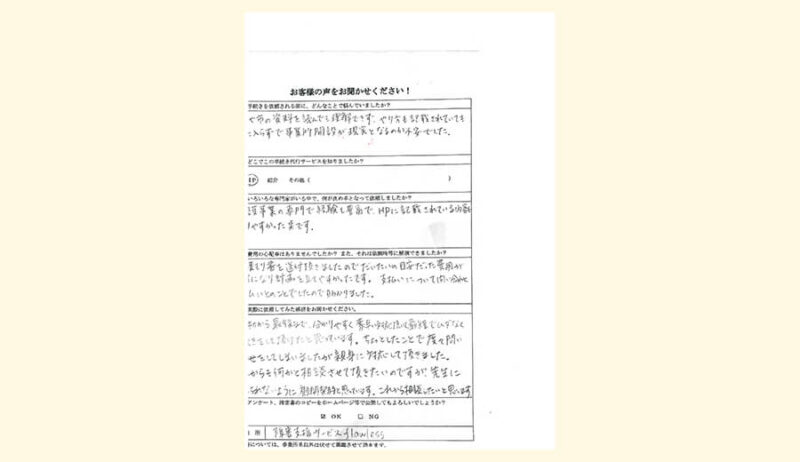 お客様の声をお聞かせください！
手続きを依頼される前に、どんなことで悩んでいましたか？
や市の資料を読んでも理解できず、やり方も記載されていても
入らずで事業所開設が現実となるのか不安でした。
どこでこの手続き代行サービスを知りましたか？
HP 紹介 その他（ ）
いろいろな専門家がいる中で、何が決め手となって依頼しましたか？
事業の専門で経験も豊富で、HPに記載されている内容も
りやすかった点です。
費用の心配事はありませんでしたか？また、それは依頼時等に解消できましたか？
見積り書を送付頂きましたのでだいたいの目安だった費用が
になり計画を立てやすかったです。支払いについて問い合わせ
いとのことでしたので助かりました。
実際に依頼してみた感想をお聞かせください。
から最後まで、分かりやすく素早い対応
頂けたと思っています。ちょっとしたことで度々問い
せをしてしまいましたが親身に対応して頂きました。
からも何かと相談させて頂きたいのですが、先生に
られないように 思っています。これから相談したいと思います
アンケート、推薦書のコピーをホームページ等で公開してもよろしいでしょうか？
☑ OK ☐ NG
所 障害支援サービスflawless
については、事業所名以外は伏せて掲載させて頂きます。